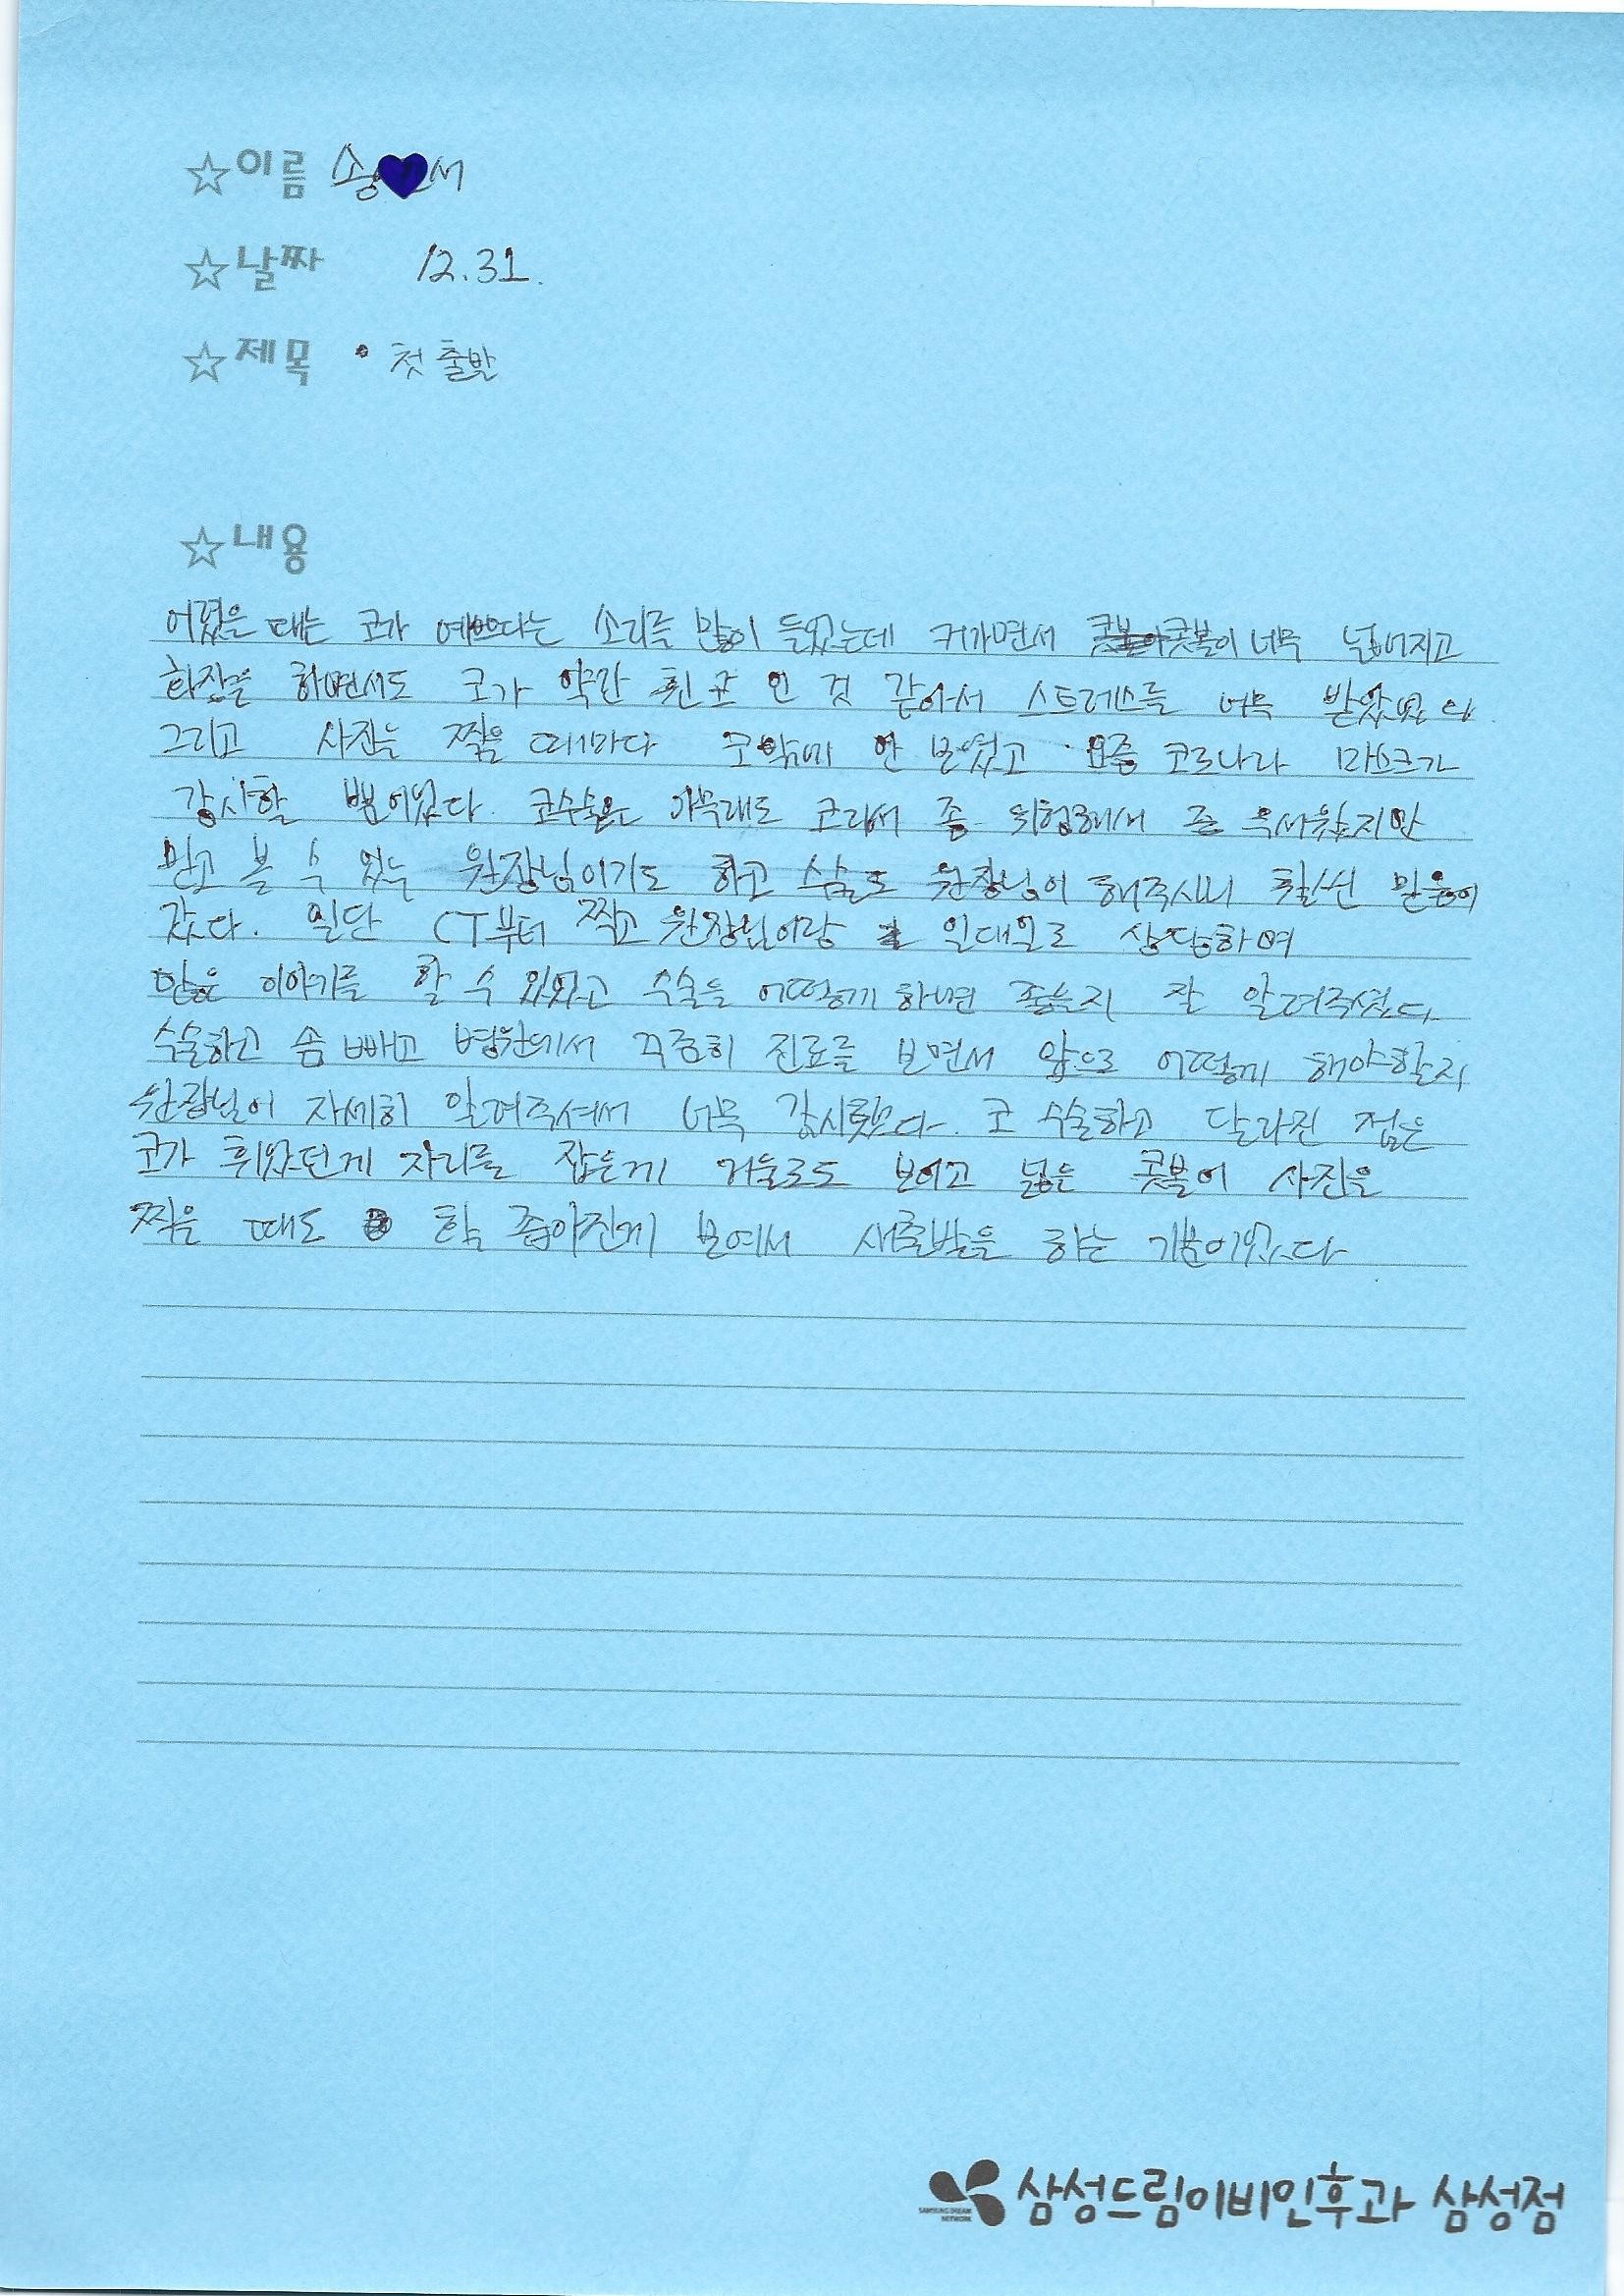 ☆이름 송 서
☆날짜 12.31.
☆제목 • 첫 출발
☆내용
어렸을 때는 코가 예쁘다는 소리를 많이 들었는데 커가면서 콧볼이 너무 넓어지고
화장을 하면서도 코가 약간 휜 코 인 것 같아서 스트레스를 너무 받았었다
그리고 사진을 찍을 때마다 코밖에 안 보였고 요즘 코로나라 마스크가
감사할 뿐이었다. 코수술은 아무래도 코라서 좀 위험해서 좀 무서웠지만
믿고 볼 수 있는 원장님이기도 하고 수술도 원장님이 해주시니 훨씬 믿음이
갔다. 일단 CT부터 찍고 원장님이랑 일대일로 상담하며
많은 이야기를 할 수 있었고 수술을 어떻게 하면 좋을지 잘 알려주셨다
수술하고 솜 빼고 병원에서 꾸준히 진료를 보면서 앞으로 어떻게 해야할지
원장님이 자세히 알려주셔서 너무 감사했다. 코 수술하고 달라진 점은
코가 휘었던게 자리를 잡은게 거울로도 보이고 넓은 콧볼이 사진을
찍을 때도 확 좁아진게 보여서 새출발을 하는 기분이었다
SAMSUNG DREAM
NETWORK
삼성드림이비인후과 삼성점